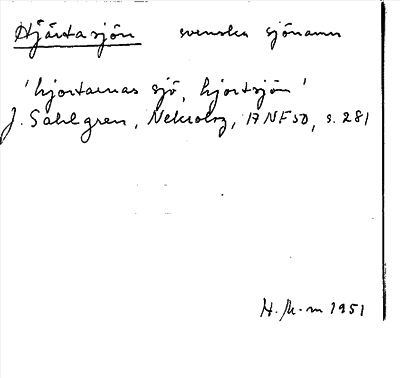 Hjärtasjön svenska sjönamn
'hjortarnas sjö, hjortsjön'
J. Sahlgren, Nekrolog, i? NF 50, s. 281
H. M-m 1951